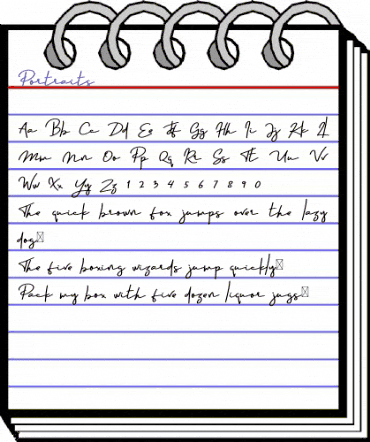 Portraits
Aa Bb Cc Dd Ee Ff Gg Hh Ii Jj Kk Ll
Mm Nn Oo Pp Qq Rr Ss Tt Uu Vv
Ww Xx Yy Zz 1 2 3 4 5 6 7 8 9 0
The quick brown fox jumps over the lazy
dog
The five boxing wizards jump quickly
Pack my box with five dozen liquor jugs